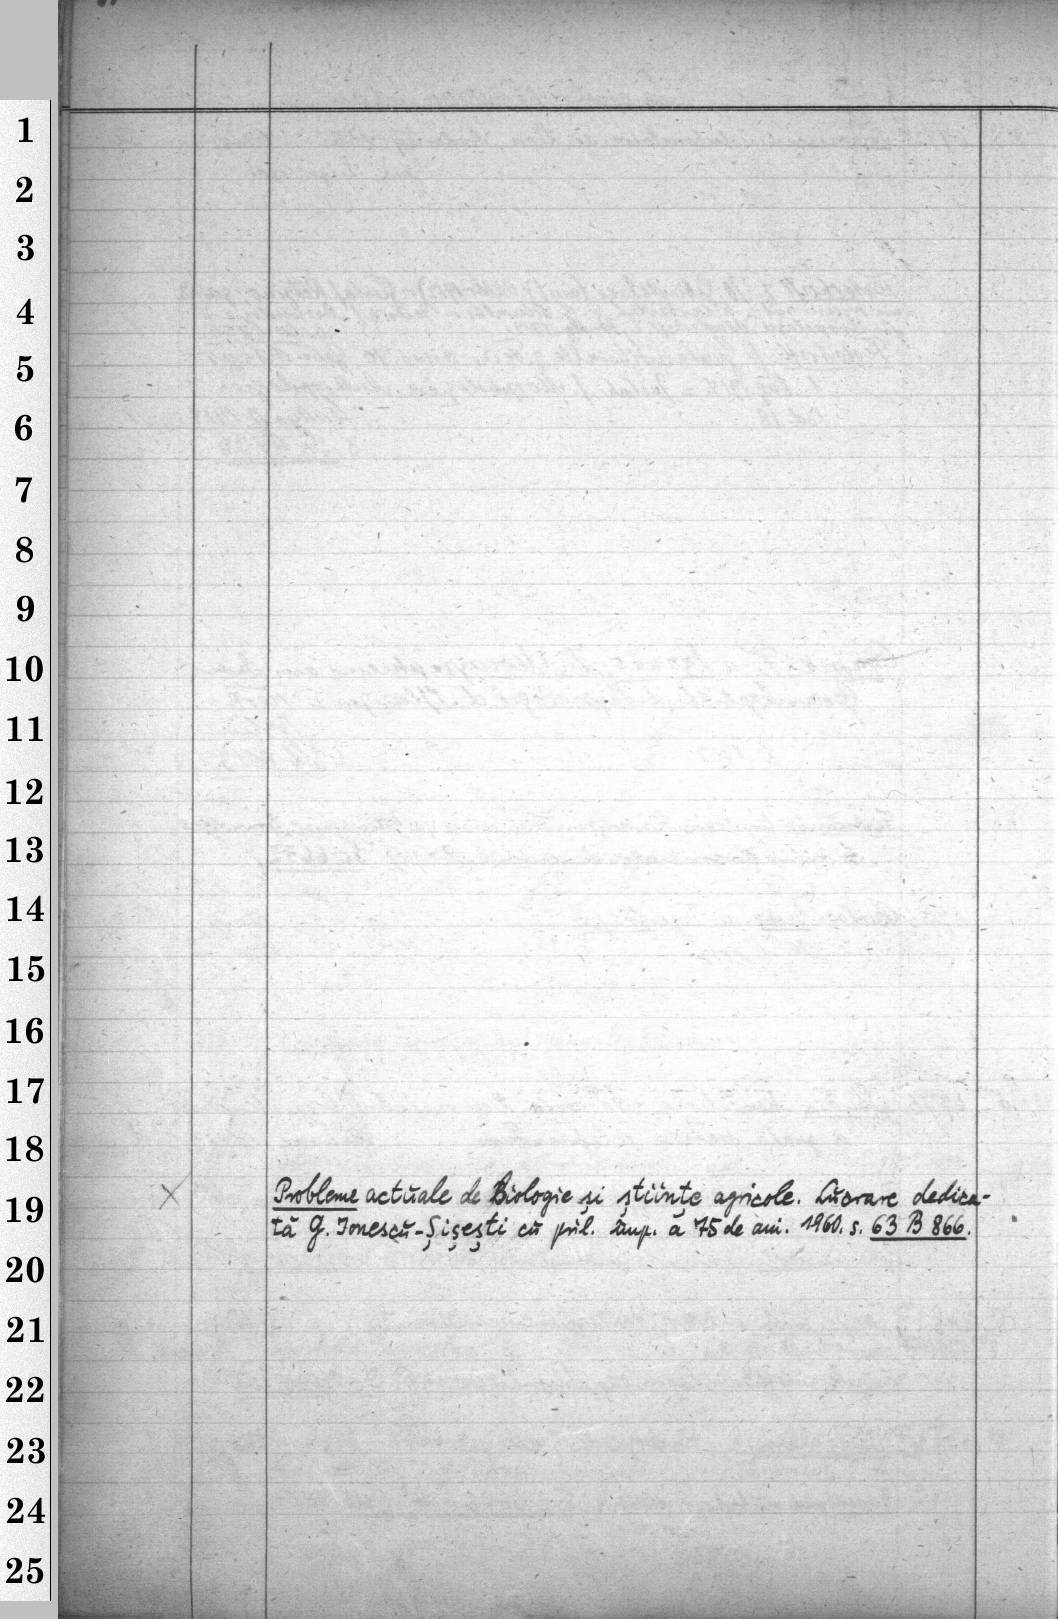 1
2
3
4
5
6
7
8
9
10
11
12
13
14
15
16
17
18
19
20
21
22
23
24
25
Probleme actuale de Biologie și științe agricole. Lucrare dedica-
tă G. Ionescu-Șișești cu pril. împ. a 75 de ani. 1960. s. 63 B 866.